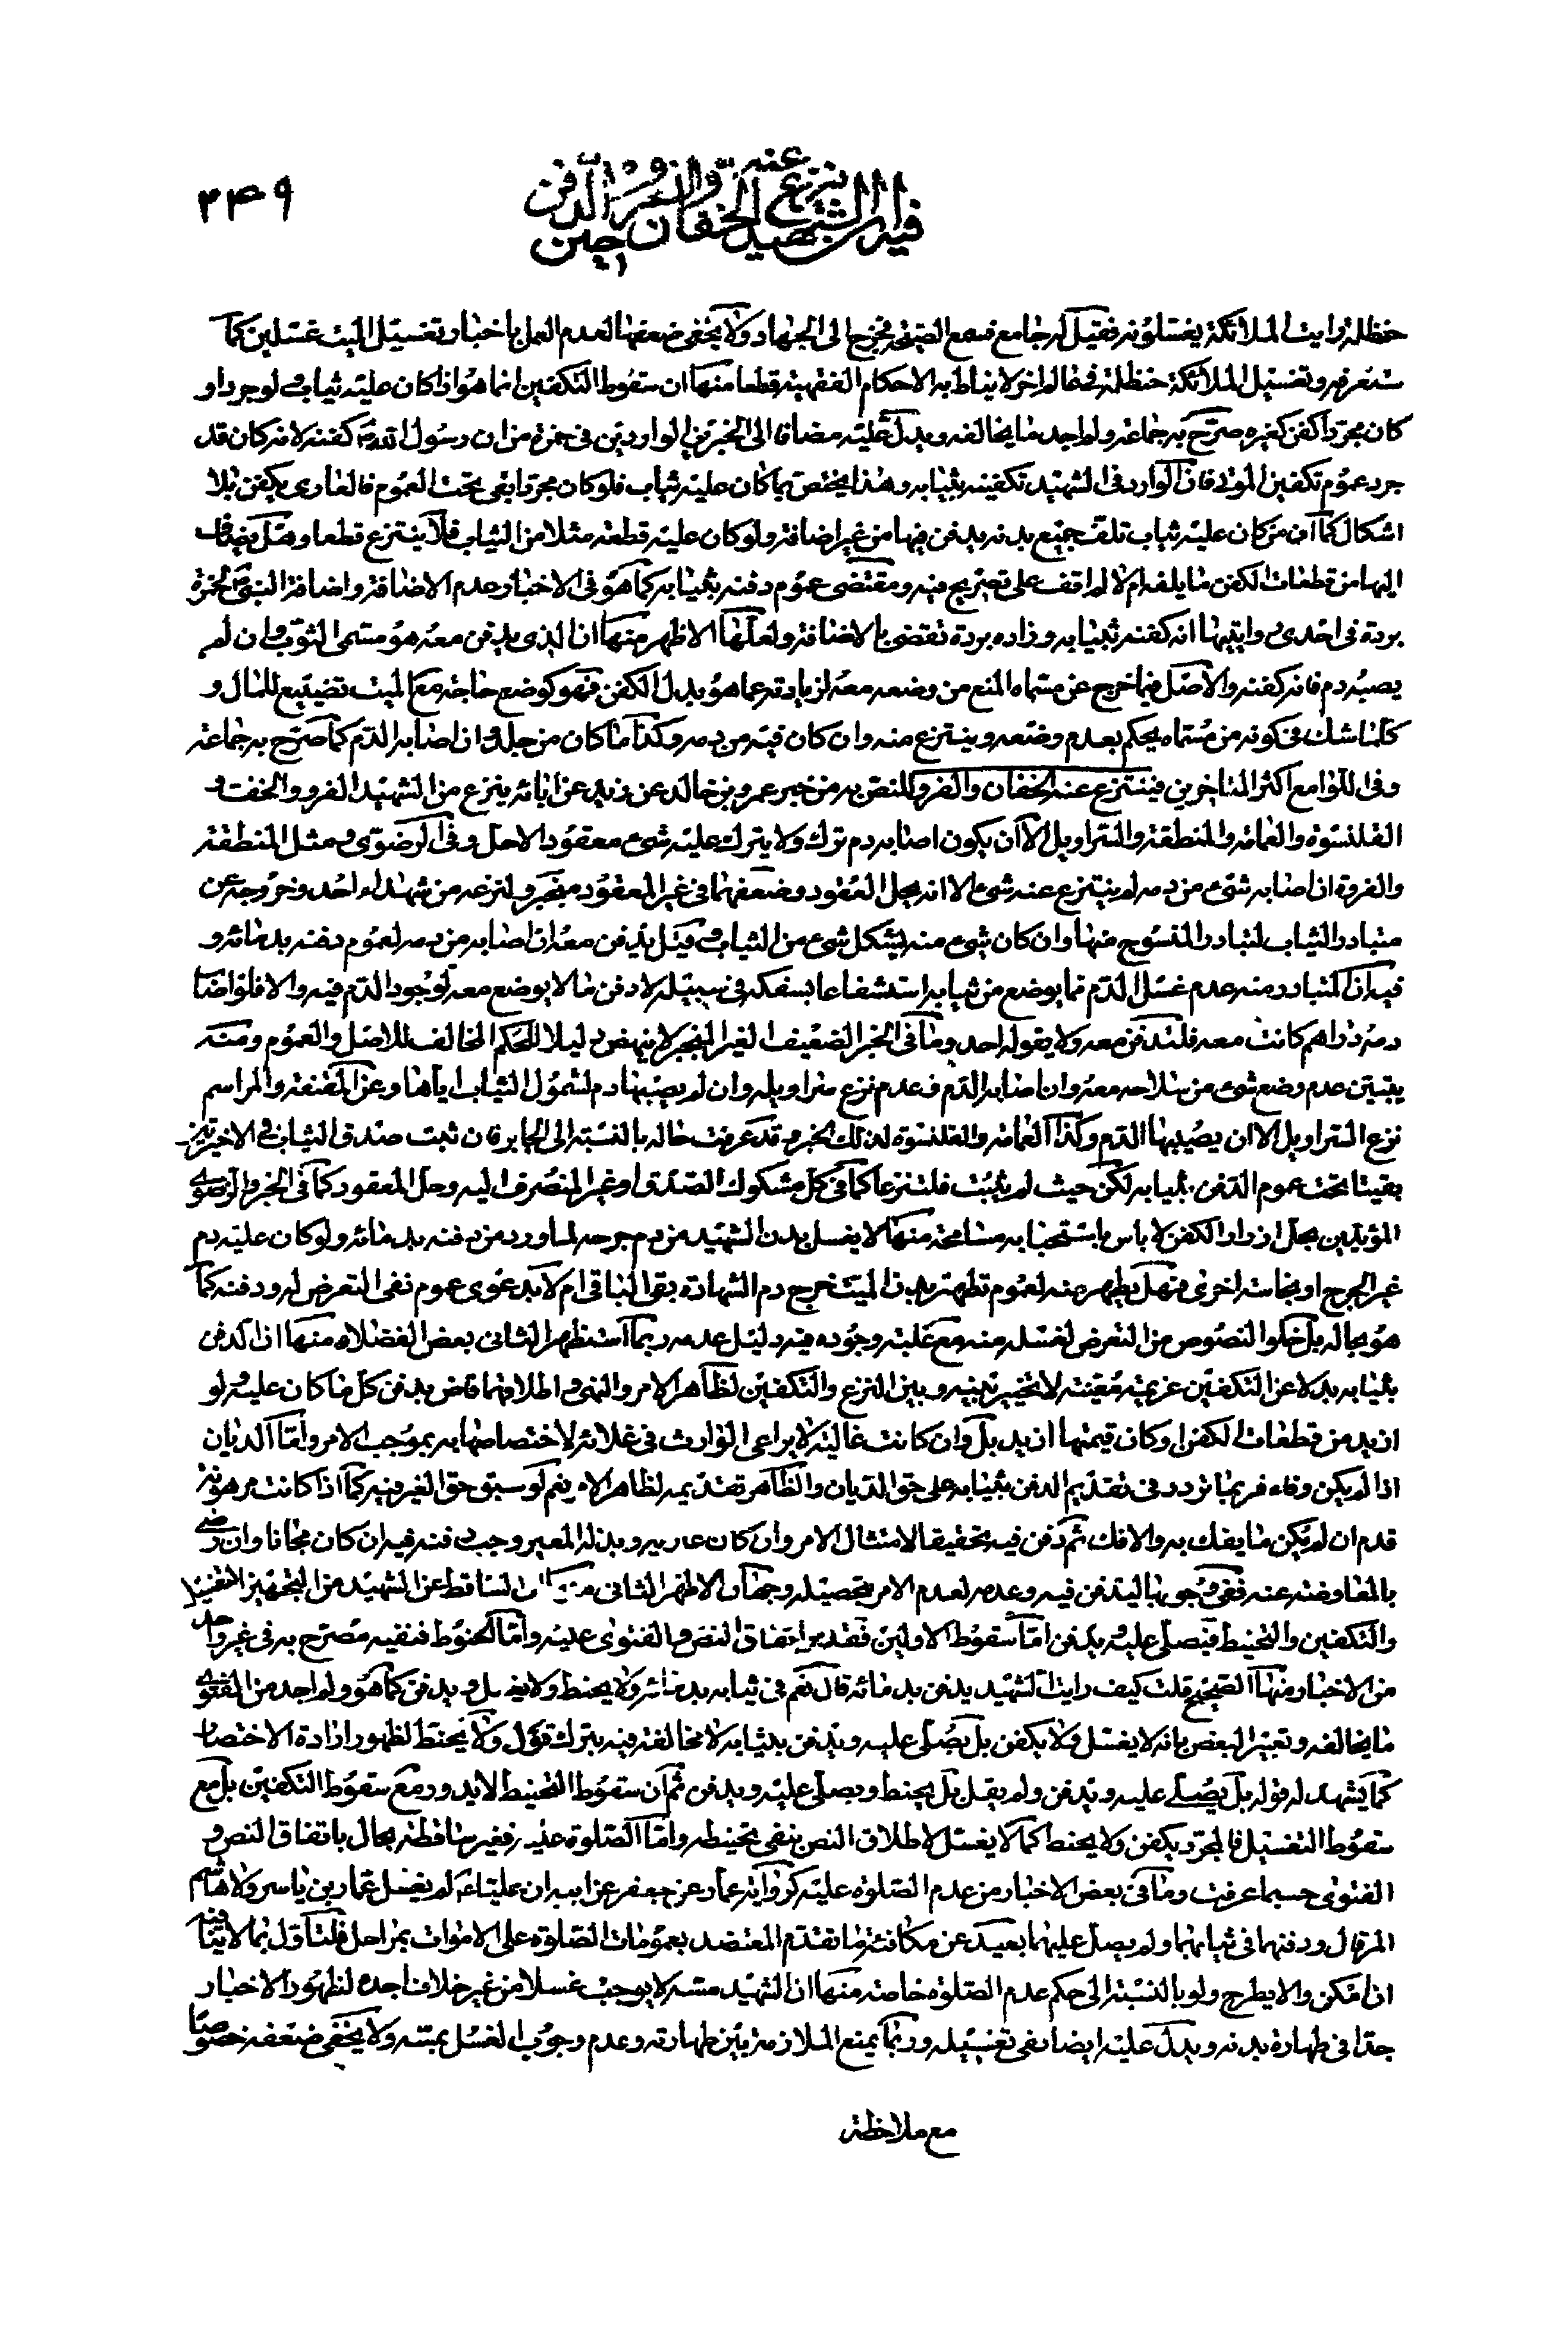 ٣٤٩
فيه ان الشهيد ينزع عنه الخفان والفرو حين الدفن
حنظلة رايت الملائكة يغسلونه فقيل له جامع فسمع الصيحة فخرج الى الجهاد ولا يخفى ضعفها لعدم العمل باخبار تغسيل الميت غسلين كما
ستعرفه وتغسيل الملائكة حنظلة في عالم اخر لا يناط به الاحكام الفقهية قطعا منها ان سقوط التكفين انما هو اذا كان عليه ثياب فلو جرد او
كان مجردا كفن كغيره صرح به جماعة ولم اجد ما يخالفه ويدل عليه مضافا الى الخبرين الواردين في حمزة من ان رسول الله ص كفنه لانه كان قد
جرد عموم تكفين الموتى فان الوارد في الشهيد تكفينه بثيابه وهذا يختص بما كان عليه ثياب فلو كان مجردا بقى تحت العموم فالعارى يكفن بلا
اشكال كما ان من كان عليه ثياب تلف جميع بدنه يدفن فيها من غير اضافة ولو كان عليه قطعة مثلا من الثياب فلا ينتزع قطعا وهل يضاف
اليها من قطعات الكفن ما يلفه ام لا لم اقف على تصريح فيه ومقتضى عموم دفنه بثيابه كما هو في الاخبار عدم الاضافة واضافة النبي ص لحمزة
بردة في احدى روايتيها انه كفنه بثيابه وزاده بردة تقضى بالاضافة ولعلها الاظهر منها ان الذى يدفن معه هو مسمى الثوب وان لم
يصبه دم فانه كفنه والاصل فيما خرج عن مسماه المنع من وضعه معه لزيادته عما هو بدل الكفن فهو كوضع حاجة مع الميت تضييع للمال و
كلما شك في كونه من مسماه يحكم بعدم وضعه وينتزع منه وان كان فيه من دمه وكذا ما كان من جلد وان اصابه الدم كما صرح به جماعة
وفي اللوامع اكثر المتاخرين فينتزع عنه الخفان والفرو للنص به من خبر عمرو بن خالد عن زيد عن ابائه ينزع من الشهيد الفرو والخف و
القلنسوة والعمامة والمنطقة والسراويل الا ان يكون اصابه دم ترك ولا يترك عليه شيء معقود الا حل وفي الرضوى ومثل المنطقة
والفروة ان اصابه شيء من دمه لم ينتزع عنه شيء الا انه يحل العقود وضعفهما في غير المعقود منجبر ولنزعه من شهداء احد وخروجه عن
متبادر الثياب لتبادر المنسوج منها وان كان شيء منه بشكل شيء من الثياب وقيل يدفن معه ان اصابه من دمه لعموم دفنه بدمائه و
فيه ان المتبادر منه عدم غسل الدم مما يوضع من ثيابه استشفاعا بسفكه في سبيله لا دفن ما لا يوضع معه لوجود الدم فيه والا فلو اصاب
دمه دراهم كانت معه فلتدفن معه ولا يقوله احد وما في الخبر الضعيف الغير المنجبر لا ينهض دليلا للحكم المخالف للاصل والعموم ومنه
يتبين عدم وضع شيء من سلاحه معه وان اصابه الدم فعدم نزع سراويله وان لم يصبها دم لشمول الثياب اياها وعن المقنعة والمراسم
نزع السراويل الا ان يصيبها الدم وكذا العمامة والقلنسوة لذلك الخبر وقد عرفت حاله بالنسبة الى الجابر فان ثبت صدق الثياب في الاخيرتين
بقيتا تحت عموم الدفن بثيابه لكن حيث لم يثبت فلتنزعا كما في كل مشكوك الصدق او غير المنصرف اليه وحل المعقود كما في الخبر والرضوى
المؤيدين بحل ازرار الكفن لا باس باستحبابه مسامحة منها لا يغسل بدن الشهيد من دم جرحه لما ورد من دفنه بدمائه ولو كان عليه دم
غير الجرح او نجاسة اخرى فهل يطهر منه لعموم تطهير بدن الميت خرج دم الشهادة بقى الباقى ام لا بدعوى عموم نفى التعرض له ودفنه كما
هو بحاله بل خلو النصوص من التعرض لغسله منه مع غلبة وجوده فيه دليل عدمه ربما استظهر الثانى بعض الفضلاء منها اذا الدفن
بثيابه بدلا عن التكفين عزيمة معينة لا تخيير بينه وبين النزع والتكفين لظاهر الامر والنهى واطلاقهما قاض بدفن كل ما كان عليه ولو
ازيد من قطعات الكفن او كان قيمتها ازيد بل وان كانت غالية لا يراعى الوارث في غلائه لاختصاصها به بموجب الامر واما الديان
اذا لم يكن وفاء فربما تردد في تقديم الدفن بثيابه على حق الديان والظاهر تقديمه لظاهر الامر نعم لو سبق حق الغير فيه كما اذا كانت مرهونة
قدم ان لم يكن ما يفك به والا فك ثم دفن فيه تحقيقا لامتثال الامر وان كان عارية وبذله المعير وجب دفنه فيه ان كان مجانا وان رضى
بالمعاوضة عنه ففى وجوبها ليدفن فيه وعدمه لعدم الامر بتحصيله وجهان الاظهر الثانى الساقط عن الشهيد من التجهيز التغسيل
والتكفين والتحنيط فيصلى عليه ويدفن اما سقوط الاولين فقد مر اتفاق النص والفتوى عليه واما الحنوط فنفيه مصرح به في غير واحد
من الاخبار ومنها الصحيح قلت كيف رايت الشهيد يدفن بدمائه قال نعم في ثيابه بدمائه ولا يحنط ولا يغسل ويدفن كما هو ولم اجد من الفتوى
ما يخالفه وتعبير البعض بانه لا يغسل ولا يكفن بل يصلى عليه ويدفن بثيابه لا مخالفة فيه بترك قول ولا يحنط لظهور ارادة الاختصار
كما يشهد له قوله بل يصلى عليه ويدفن ولم يقل بل يحنط ويصلى عليه ويدفن ثم ان سقوط التحنيط لا يدور مع سقوط التكفين بل مع
سقوط التغسيل فالمجرد يكفن ولا يحنط كما لا يغسل لاطلاق النص بنفى تحنيطه واما الصلوة عليه فغير ساقطة بحال باتفاق النص و
الفتوى حسبما عرفت وما في بعض الاخبار من عدم الصلوة عليه كرواية عمار عن جعفر عن ابيه ان عليا ع لم يغسل عمار بن ياسر ولا هاشم
المرقال ودفنهما في ثيابهما ولم يصل عليهما بعيد عن مكافئة ما تقدم المعتضد بعمومات الصلوة على الاموات بمراحل فلتأول بما لا ينافيه
ان امكن والا يطرح ولو بالنسبة الى حكم عدم الصلوة خاصة منها ان الشهيد مسه لا يوجب غسلا من غير خلاف اجده لظهور الاخبار
جدا في طهارة بدنه ويدل عليه ايضا نفى تغسيله وربما يمنع الملازمة بين طهارته وعدم وجوب الغسل بمسه ولا يخفى ضعفه خصوصا
مع ملاحظة